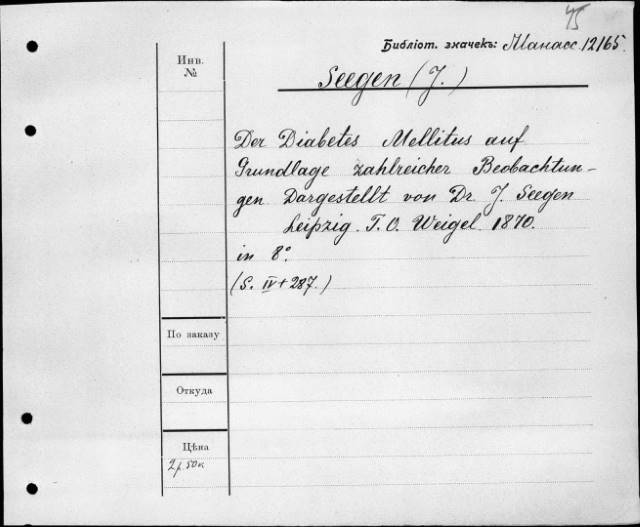 45
Библіот. значекъ: Манасс. 12165.
Инв.
№
Seegen (J.)
Der Diabetes Mellitus auf
Grundlage zahlreicher Beobachtun-
gen Dargestellt von Dr J. Seegen
Leipzig. T. O. Weigel. 1870.
in 8°.
(S. IV + 287.)
По заказу
Откуда
Цѣна
2 р. 50 к